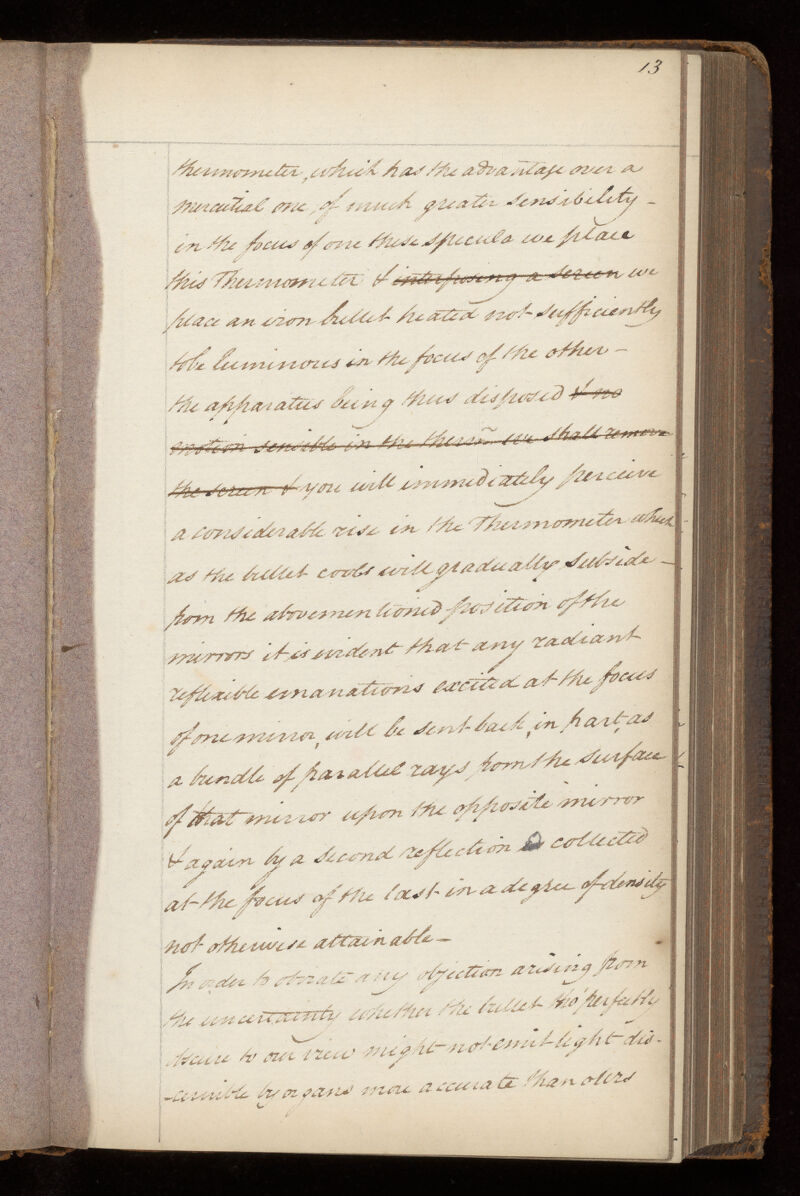 13
thermometer, which has the advantage over a
mercurial one, of much greater sensibility -
in the focus of one these specula we place
this Thermometer & interposing a screen we
place an iron bullet heated not sufficiently
to be luminous in the focus of the other -
the apparatus being thus disposed & no
motion sensible in the therm we shall remove
the screen & you will immediately perceive
a considerable rise in the Thermometer which
as the bullet cools will gradually subside -
from the abovementioned position of the
mirrors it is evident that any radiant
reflexible emanations excited at the focus
of one mirror, will be sent back, in part, as
a bundle of parallel rays from the surface
of that mirror upon the opposite mirror
& again by a second reflection collected
at the focus of the last in a degree of density
not otherwise attainable -
In order to obviate any objection arising from
the uncertainty whether the bullet tho' perfectly
obscure to our view might not emit light dis-
-cernible by organs more accurate than ours